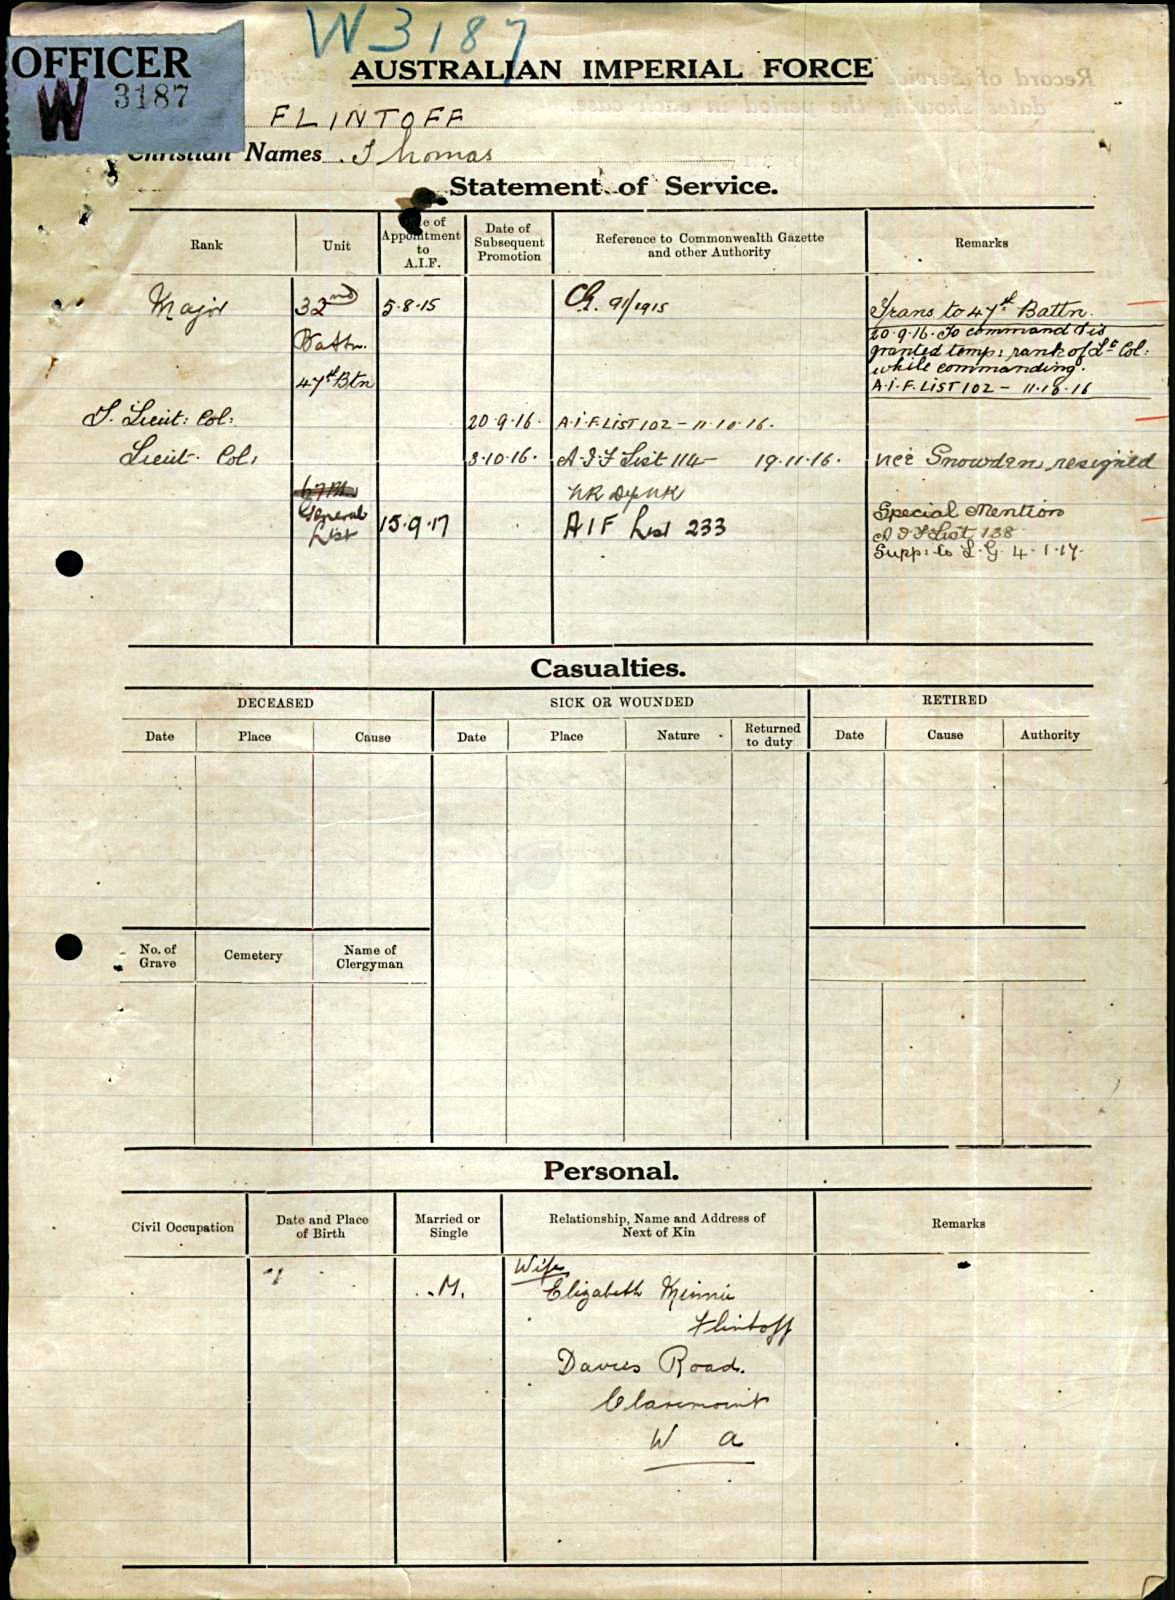 W3187
OFFICER
W 3187
AUSTRALIAN IMPERIAL FORCE
FLINTOFF
Christian Names Thomas
Statement of Service.
Rank
Unit
Date of Appointment to A.I.F.
Date of Subsequent Promotion
Reference to Commonwealth Gazette and other Authority
Remarks
Major 32nd 5.8.15 91/1915 Trans to 47th Battn.
Battn. 20.9.16. To command & is
granted temp: rank of Lt Col:
while commanding.
47th Btn A.I.F. LIST 102 - 11.10.16
T. Lieut: Col: 20.9.16. A.I.F. LIST 102 - 11.10.16.
Lieut. Col: 3.10.16. A.I.F List 114 - 19.11.16. vice Snowden, resigned
General List 15.9.17 AIF List 233
Special Mention
A I F List 138
Supp: to L.G. 4.1.17.
Casualties.
DECEASED
SICK OR WOUNDED
RETIRED
Date
Place
Cause
Date
Place
Nature
Returned to duty
Date
Cause
Authority
No. of Grave
Cemetery
Name of Clergyman
Personal.
Civil Occupation
Date and Place of Birth
Married or Single
Relationship, Name and Address of Next of Kin
Remarks
M.
Wife
Elizabeth Minnie
Flintoff
Davies Road.
Claremont
W A